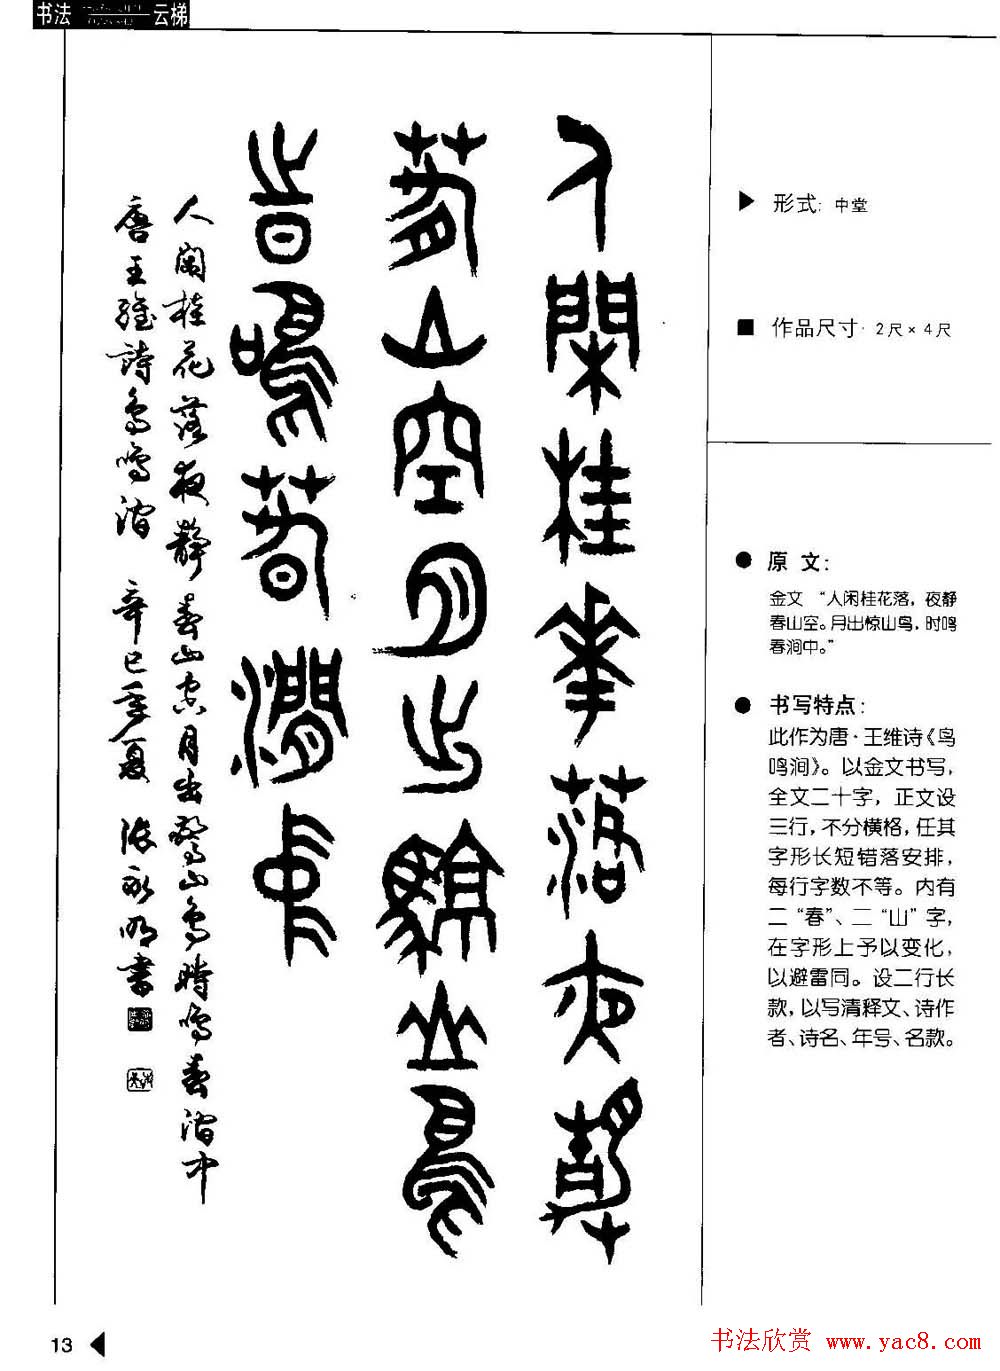 书法 云梯
人閑桂華落夜靜
春山空月出驚山鳥
時鳴春澗中
人閑桂花落夜靜春山空月出驚山鳥時鳴春澗中
唐王維詩鳥鳴澗 辛巳年夏 張永明書
形式：中堂
作品尺寸·2尺×4尺
原 文：
金文 “人闲桂花落，夜静
春山空。月出惊山鸟，时鸣
春涧中。”
书写特点：
此作为唐·王维诗《鸟
鸣涧》。以金文书写，
全文二十字，正文设
三行，不分横格，任其
字形长短错落安排，
每行字数不等。内有
二“春”、二“山”字，
在字形上予以变化，
以避雷同。设二行长
款，以写清释文、诗作
者、诗名、年号、名款。
13
书法欣赏 www.yac8.com